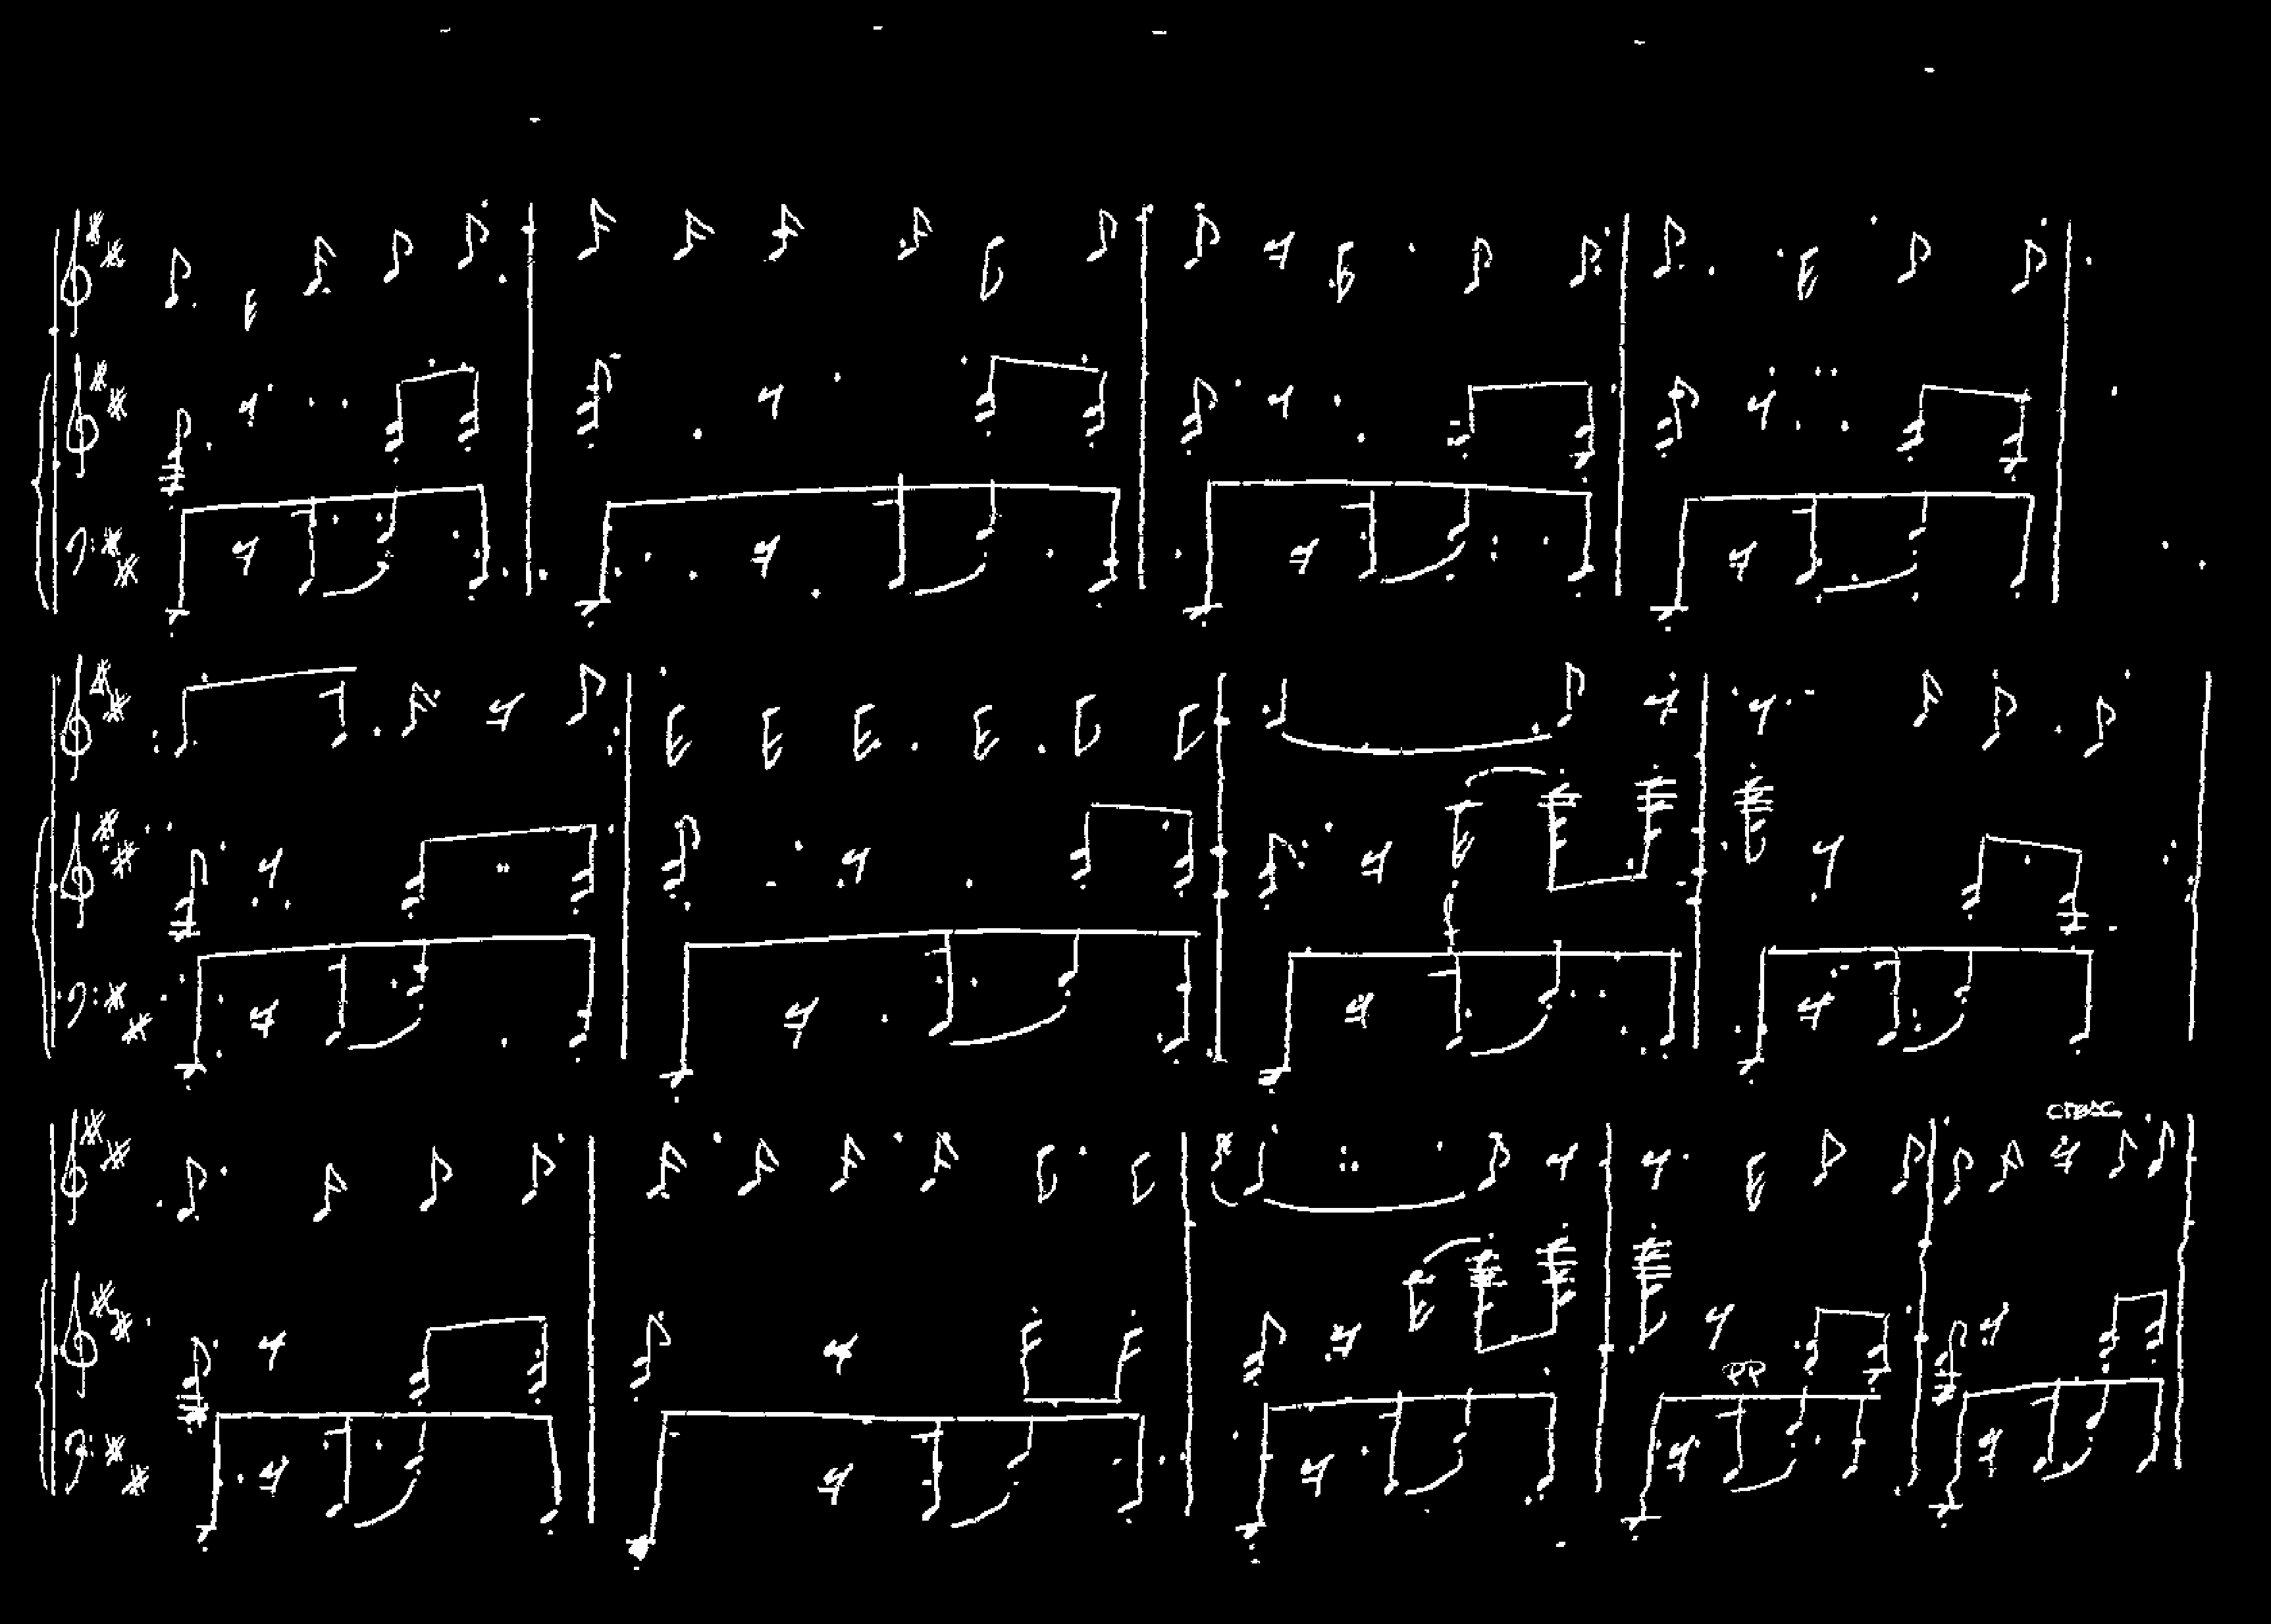 cresc.
pp